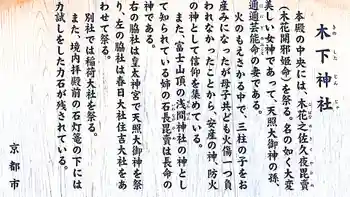 木下神社
本殿の中央には、木花之佐久夜毘売
(木花開邪姫命)を祭る。名の如く大変
美しい女神であって、天照大御神の孫、
邇邇芸能命の妻である。
火のもえさかる中で、三柱の子をお
産みになったが母子共ども火傷一つ負
われなかったことから、安産の神、防火
の神として信仰を集めている。
また、富士山頂の浅間神社の神とし
て知られている姉の石長毘売は長命の
神である。
右の脇社は皇太神宮で天照大御神を祭
り、左の脇社は春日大社住吉大社をあ
わせて祭る。
別社では稲荷大社を祭る。
また、境内拝殿前の石灯篭の下には
力試しをした力石が残されている。
京都市